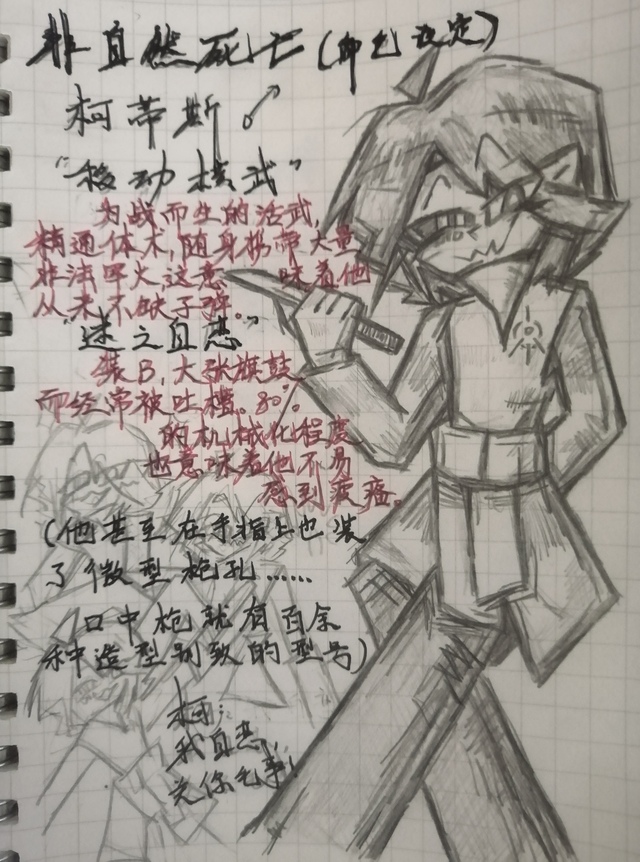 非自然死亡(角色设定)
柯蒂斯♂
"移动核武"
为战而生的活武,
精通体术,随身携带大量
非法军火,这意味着他
从未不缺子弹。
"迷之自恋"
装B,大张旗鼓
而经常被吐槽。80%
的机械化程度
也意味着他不易
感到疲惫。
(他甚至在手指上也装
了微型枪孔……
口中枪就有百余
种造型别致的型号)
柯:
我自恋,
关你毛事!